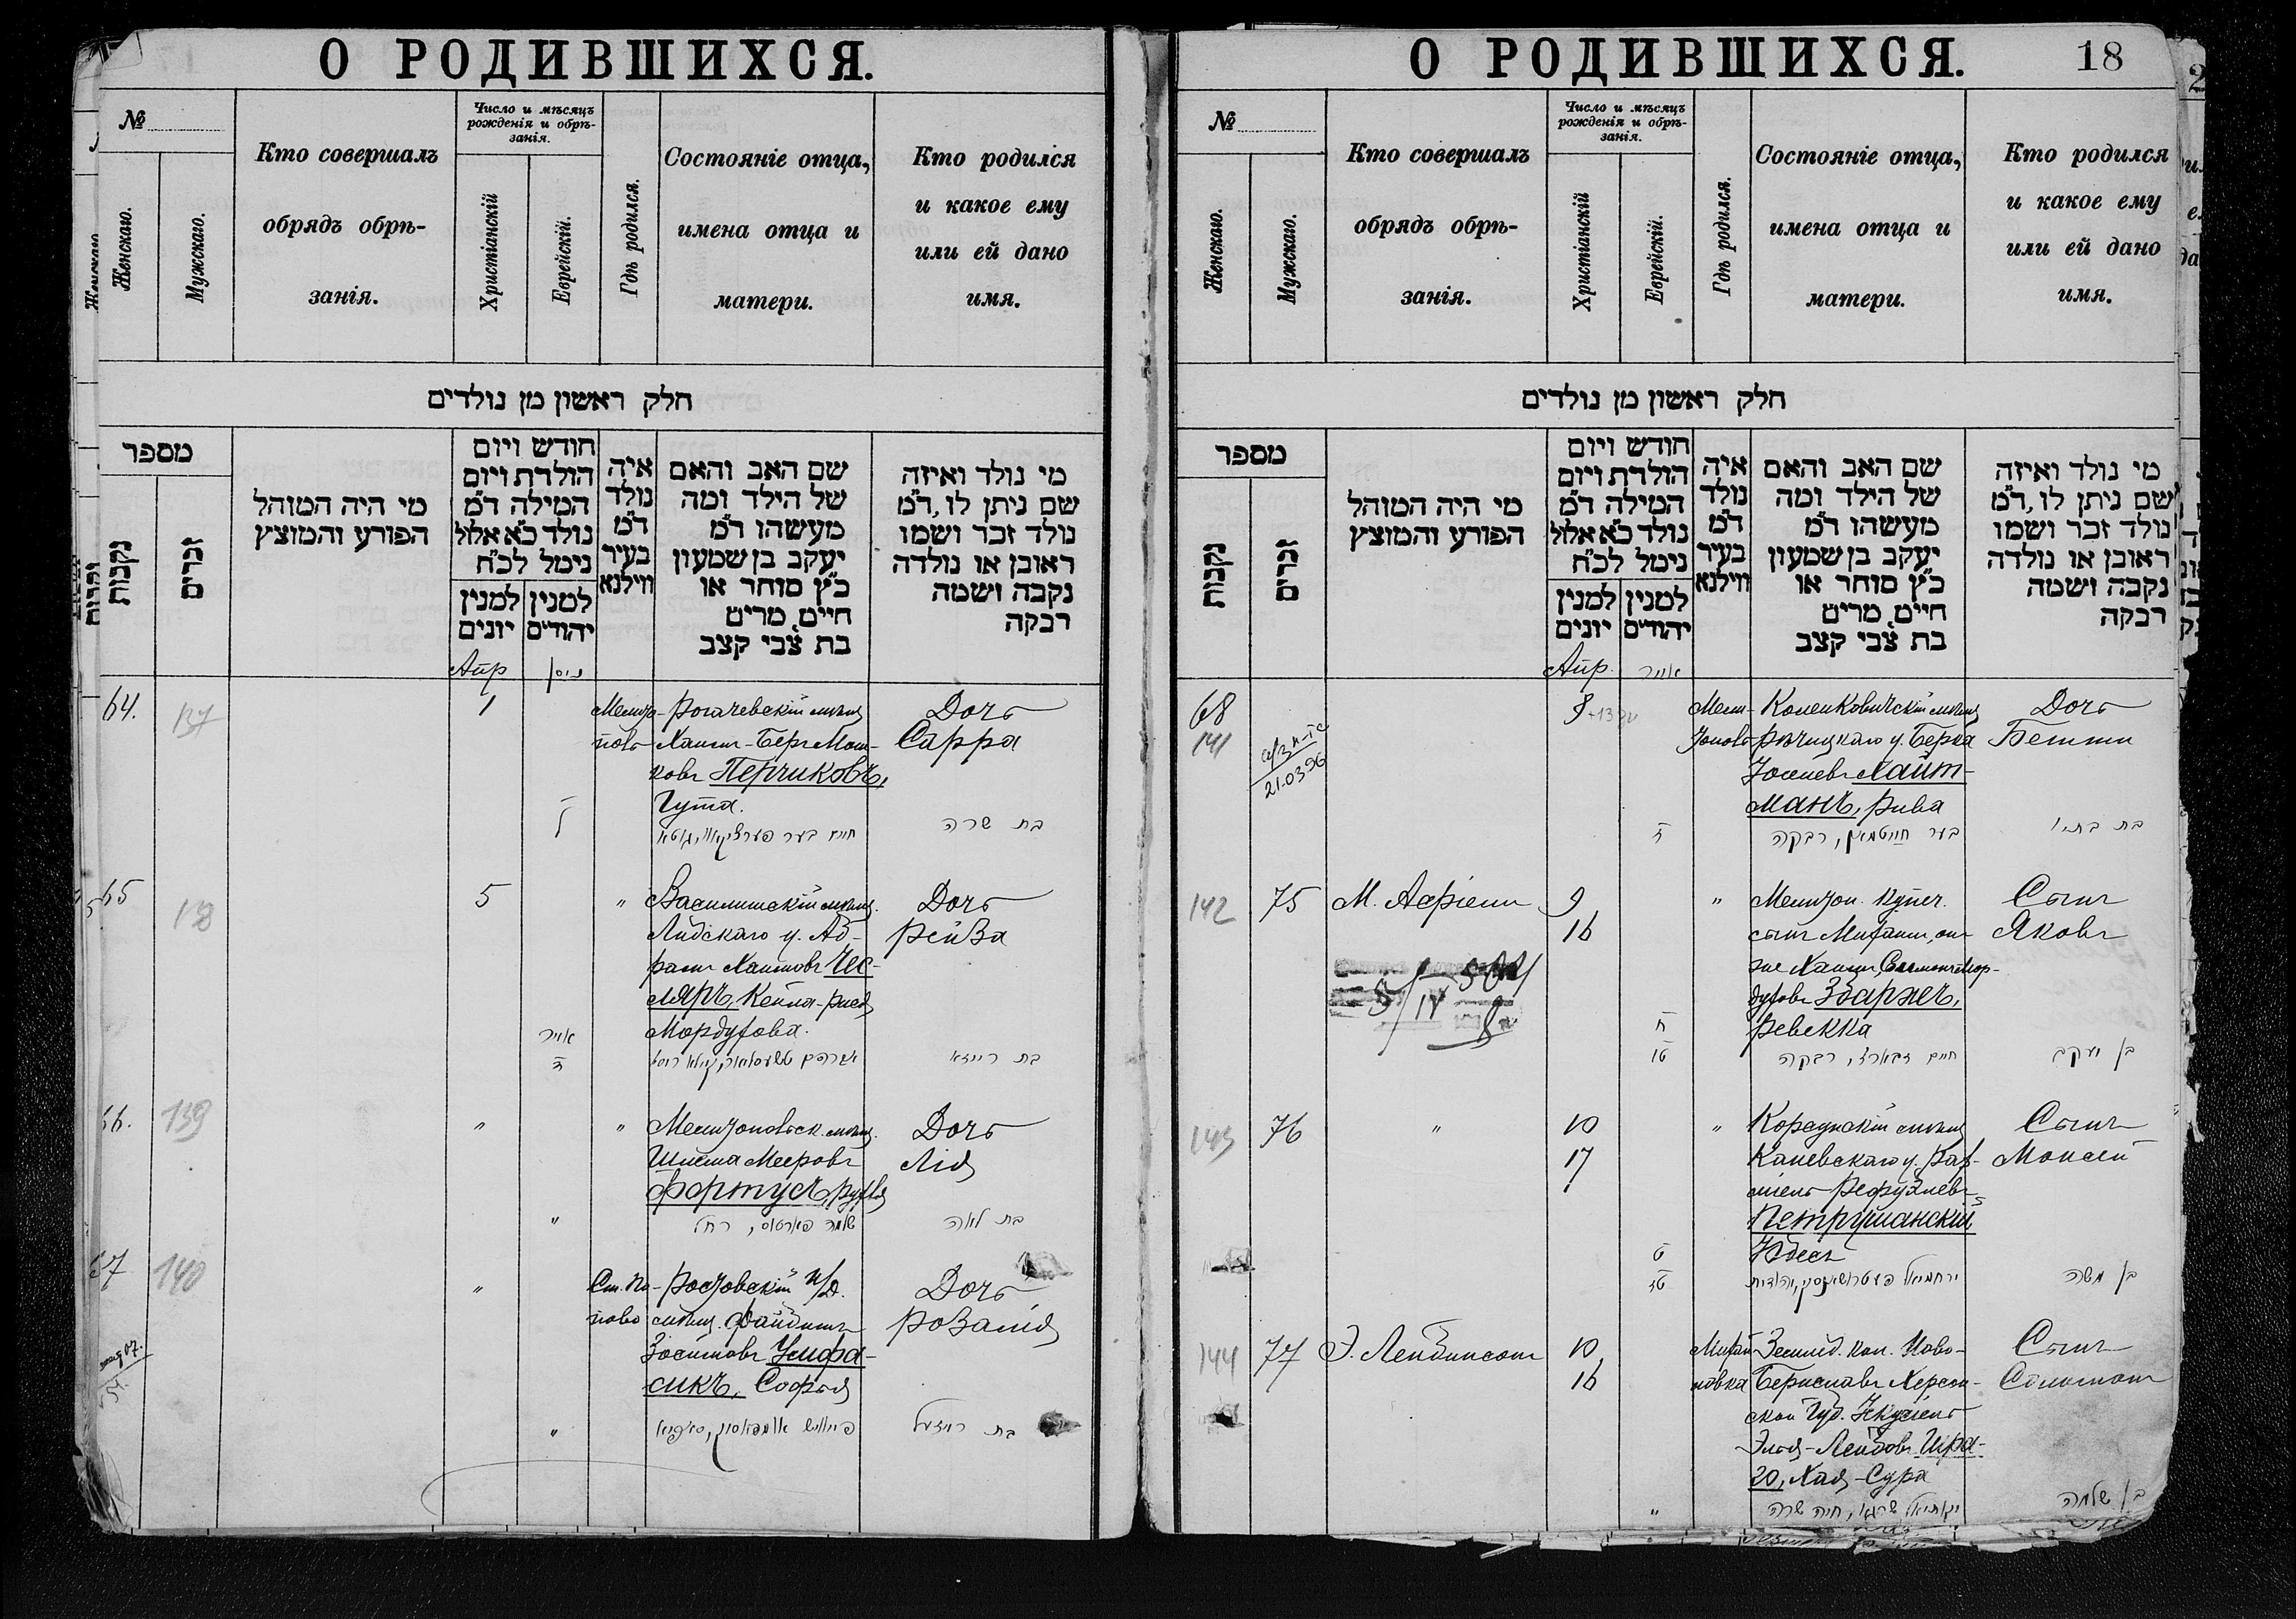 О РОДИВШИХСЯ.
№
Женскаго.
Мужскаго.
Кто совершалъ
обрядъ обрѣ-
занія.
Число и мѣсяцъ
рожденія и обрѣ-
занія.
Христіанскій
Еврейскій.
Гдѣ родился.
Состояніе отца,
имена отца и
матери.
Кто родился
и какое ему
или ей дано
имя.
חלק ראשון מן נולדים
מספר
נקבות
זכרים
מי היה המוהל
הפורע והמוצץ
חודש ויום
הולדת ויום
המילה ד״מ
נולד כ״א אלול
נימל לכ״ח
למנין
יונים
למנין
יהודים
איה
נולד
ד״מ
בעיר
ווילנא
שם האב והאם
של הילד ומה
מעשהו ד״מ
יעקב בן שמעון
כ״ץ סוחר או
חיים, מרים
בת צבי קצב
מי נולד ואיזה
שם ניתן לו, ד״מ
נולד זכר ושמו
ראובן או נולדה
נקבה ושמה
רבקה
Апр
ניסן
64.
137
1
Мелито-
поль
Рогачевскій мѣщ
Хаимъ-Беръ Мош-
ковъ Перчиковъ,
Гута.
Дочь
Сарра
בת שרה
65
138
5
"
Василишскій мѣщ.
Лидскаго у. Аб-
рамъ Хаимовъ Чес-
ляръ, Кейла-Рися
Мордухова.
Дочь
Рейза
אייר
ה
בת רייזא
66.
139
"
"
Мелитопольск. мѣщ.
Шлема Мееровъ
Фортусъ, Рухля
Дочь
Лія
"
שלמה פארטוס, רחל
בת לאה
67
140
"
Ст. По-
пово
Ростовскій н/Д.
мѣщ. Файвишъ
Зосимовъ Улифа-
сикъ, Софья
Дочь
Розалія
"
בת רייזעל
О РОДИВШИХСЯ.
18
№
Женскаго.
Мужскаго.
Кто совершалъ
обрядъ обрѣ-
занія.
Число и мѣсяцъ
рожденія и обрѣ-
занія.
Христіанскій
Еврейскій.
Гдѣ родился.
Состояніе отца,
имена отца и
матери.
Кто родился
и какое ему
или ей дано
имя.
חלק ראשון מן נולדים
מספר
נקבות
זכרים
מי היה המוהל
הפורע והמוצץ
חודש ויום
הולדת ויום
המילה ד״מ
נולד כ״א אלול
נימל לכ״ח
למנין
יונים
למנין
יהודים
איה
נולד
ד״מ
בעיר
ווילנא
שם האב והאם
של הילד ומה
מעשהו ד״מ
יעקב בן שמעון
כ״ץ סוחר או
חיים, מרים
בת צבי קצב
מי נולד ואיזה
שם ניתן לו, ד״מ
נולד זכר ושמו
ראובן או נולדה
נקבה ושמה
רבקה
Апр.
אייר
68
141
21.03.96
8
Мели-
тополь
Коленковичскій мѣщ
Рѣчицкаго у. Берка
Іоселевъ Хайт-
манъ, Рива
Дочь
Бетти
ח
בער חייטמאן, רבקה
142
75
9
16
"
Мелитоп. купеч.
сынъ Михаилъ, онъ
же Хаимъ, Соломонъ Мор-
духовъ Збаржъ,
Ревекка
Сынъ
Яковъ
ח
טו
חיים זבארז, רבקה
בן יעקב
143
76
"
10
17
"
Корсунскій мѣщ
Каневскаго у. Рах-
міель Рефуэлевъ
Петрушанскій
Юдесъ
Сынъ
Моисей
ט
טז
בן משה
144
77
Э. Лейбинсонъ
10
16
Михай-
ловка
Землед. кол. Ново-
Бериславъ Херсон-
ской губ. Іекусіель
Эля-Лейбовъ Шра-
го, Хая-Сура
Сынъ
Соломонъ
"
יקותיאל שראגא, חיה שרה
בן שלמה